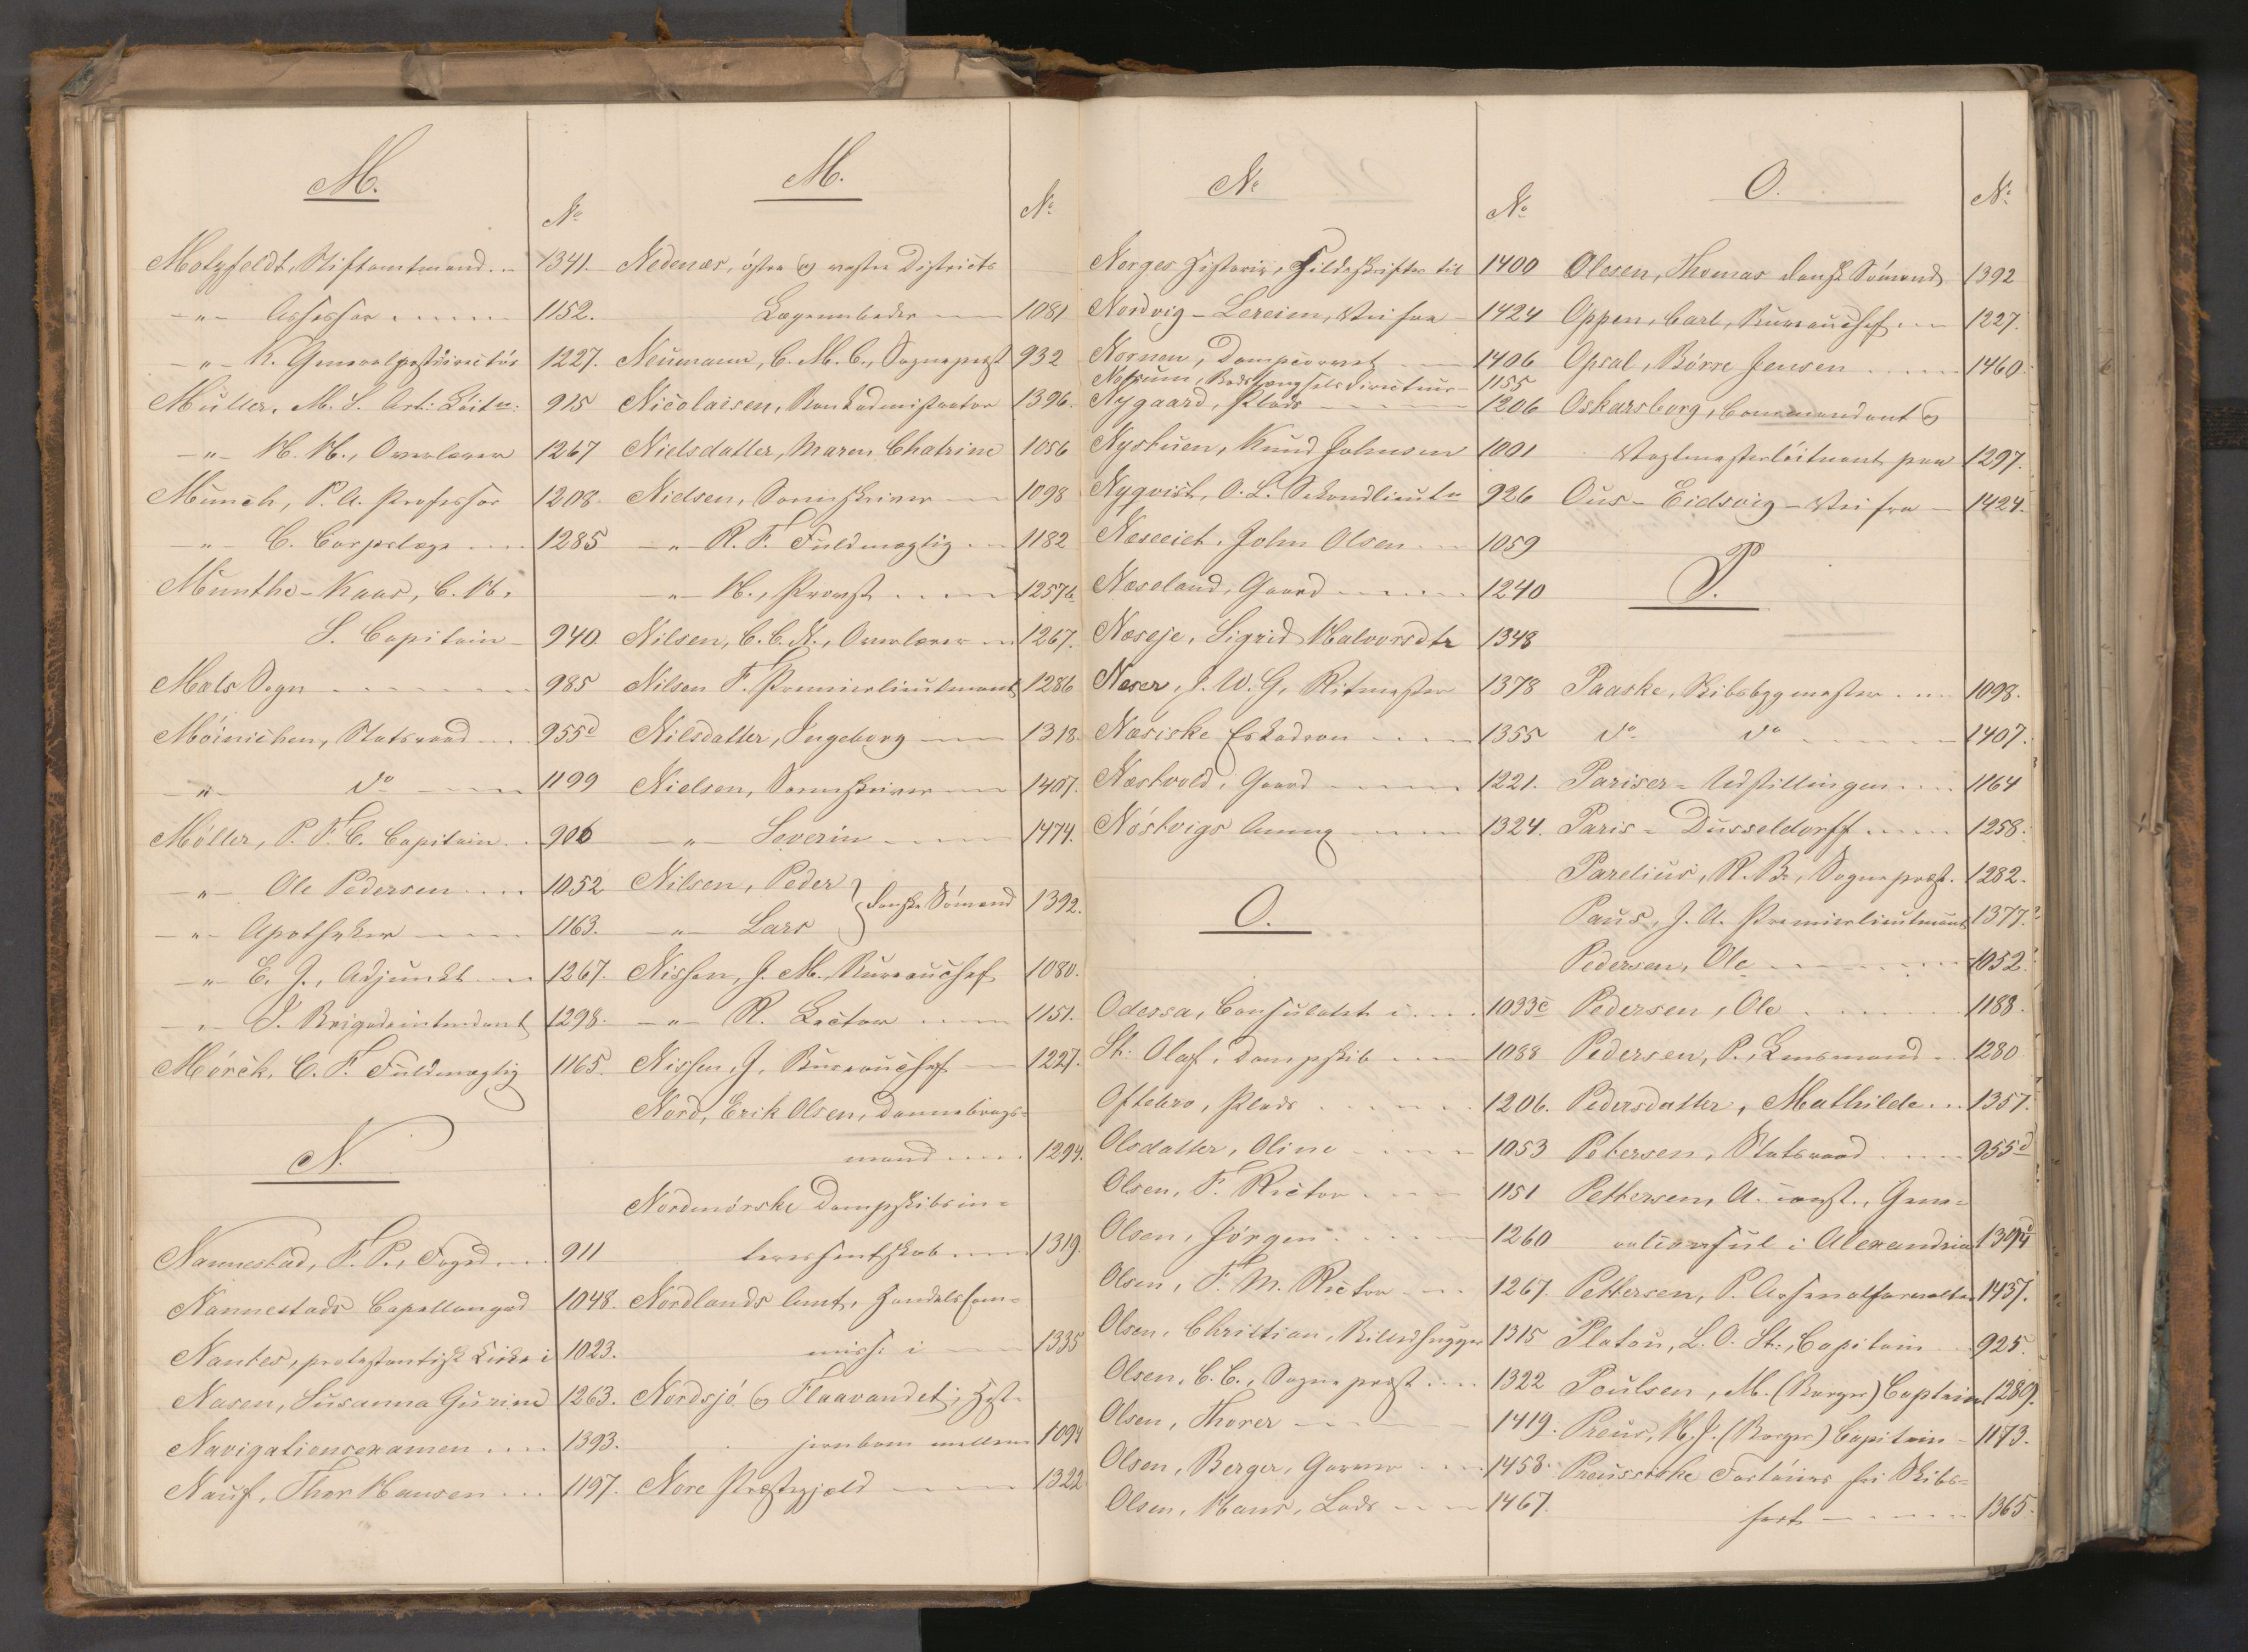 M.
No
Motzfeldt, Stiftamtmand 1341.
-"- Assessor 1152.
-"- K. Generalpostdirectör 1227.
Müller, M. S. Art: Löitn: 915
-"- H. H., Overlærer 1267
Munch, P. A. Professor 1208.
-"- C. Corpslæge 1285
Munthe-Kaas, C. H.
S. Capitain 940.
Mæls Sogn 985
Möinichen, Statsraad 955d
-"- do 1199
Möller, P. F. C. Capitain 906
-"- Ole Pedersen 1052
-"- Apotheker 1163.
-"- E. J., Adjunkt 1267.
-"- J. Brigadeintendant 1298.
Mörch, C. F. Fuldmægtig 1165.
N.
Nannestad, F. P., Foged 911
Nannestads Capellangad 1048.
Nantes, protestantisk Kirke i 1023.
Nasen, Susanna Gurine 1263.
Navigationsexamen 1393.
Nauf, Thor Hansen 1197.
M.
No
Nedenæs, östre og vestre Districts
Lægeembeder 1081
Neumann, C. M. C., Sognepræst 932
Nicolaisen, Bankadministrator 1396.
Nielsdatter, Maren Chatrine 1056
Nielsen, Sorenskriver 1098
-"- R. F. Fuldmægtig 1182
-"- H., Provst 1257b
Nilsen, C. C. N., Overlærer 1267.
Nilsen F. Premierlieutenant 1286
Nilsdatter, Ingeborg 1318.
Nielsen, Sorenskriver 1407.
-"- Severin 1474.
Nilsen, Peder } danske Sömænd 1392.
-"- Lars
Nissen, J. M. Bureauchef 1080.
-"- R. Rector 1151.
Nissen, J. Bureauchef 1227.
Nord, Erik Olsen, Dannebrogs=
mand 1294.
Nordmörske Dampskibsin=
teressentskab 1319.
Nordlands Amt, Handelscom=
miss: i 1335
Nordsjö og Flaavandet, Hest-
jernbane mellem 1094
Nore Præstegjæld 1322
N.
No
Norges Historie, Kildeskrifter til 1400
Nordvig-Lereien, Vei fra 1424
Nornen, Dampcorvet 1406
Notrum, Bodsfængselsdirecteur 1155
Nygaard, Plads 1206
Nystuen, Knud Johnsen 1001
Nyqvist, O. L. Sekondlieutn 926
Næseeiet, John Olsen 1059
Næseland, Gaard 1240
Næseje, Sigrid Halvorsdtr 1348
Neser, J. W. G, Ritmester 1378
Næsiske Eskadron 1355
Næstvold, Gaard 1221.
Nöstvigs Anneg 1324.
O.
Odessa, Consulatet i 1033c
St: Olaf, Dampskib 1088
Oftebro, Plads 1206.
Olsdatter, Oline 1053
Olsen, F. Rector 1151
Olsen, Jörgen 1260
Olsen, F. M. Rector 1267.
Olsen, Christian, Billedhugger 1315
Olsen, C. C., Sognepræst 1322
Olsen, Thorer 1419.
Olsen, Berger, Garver 1458.
Olsen, Hans, Lods 1467.
O.
No
Olesen, Thomas dansk Sömand 1392
Oppen, Carl, Bureauchef 1227.
Opsal, Börre Jensen 1460
Oskarsborg, Commandant og
Vagtmesterlöitnant paa 1297.
Ous-Eidsvig-Vei fra 1424.
P.
Paaske, Skibsbygmester 1098.
do do 1407.
Pariser-Udstillingen 1164
Paris-Dusseldorff 1258.
Parelius, R. B., Sognepræst. 1282.
Paus, J. A. Premierlieutenant 1377.
Pedersen, Ole 1052.
Pedersen, Ole 1188.
Pedersen, P., Lensmand 1280
Pedersdatter, Mathilde 1357.
Petersen, Statsraad 955d
Pettersen, A. const., Gene=
ralconsul i Alexandria 1394
Pettersen, P. Arsenalforvalter 1437.
Platou, L. O. St:, Capitain 925.
Poulsen, M. (Borger) Captein 1289.
Preus, H. J. (Borger) Capitain 1173.
Preussiske Fartöiers fri Skibs=
fart 1365.